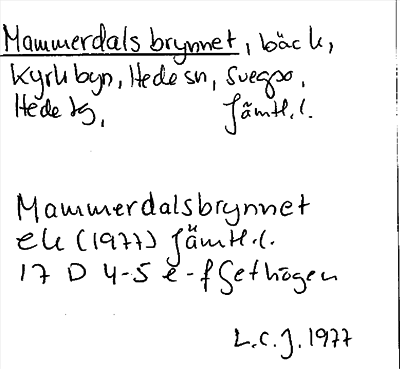 Mammerdalsbrynnet, bäck,
Kyrkbyn, Hede sn, Svegs
Hede tg, Jämtl. l.
Mammerdalsbrynnet
ek (1977) Jämtl. l.
17 D 4-5 e-f Gethögen
L.C.J. 1977